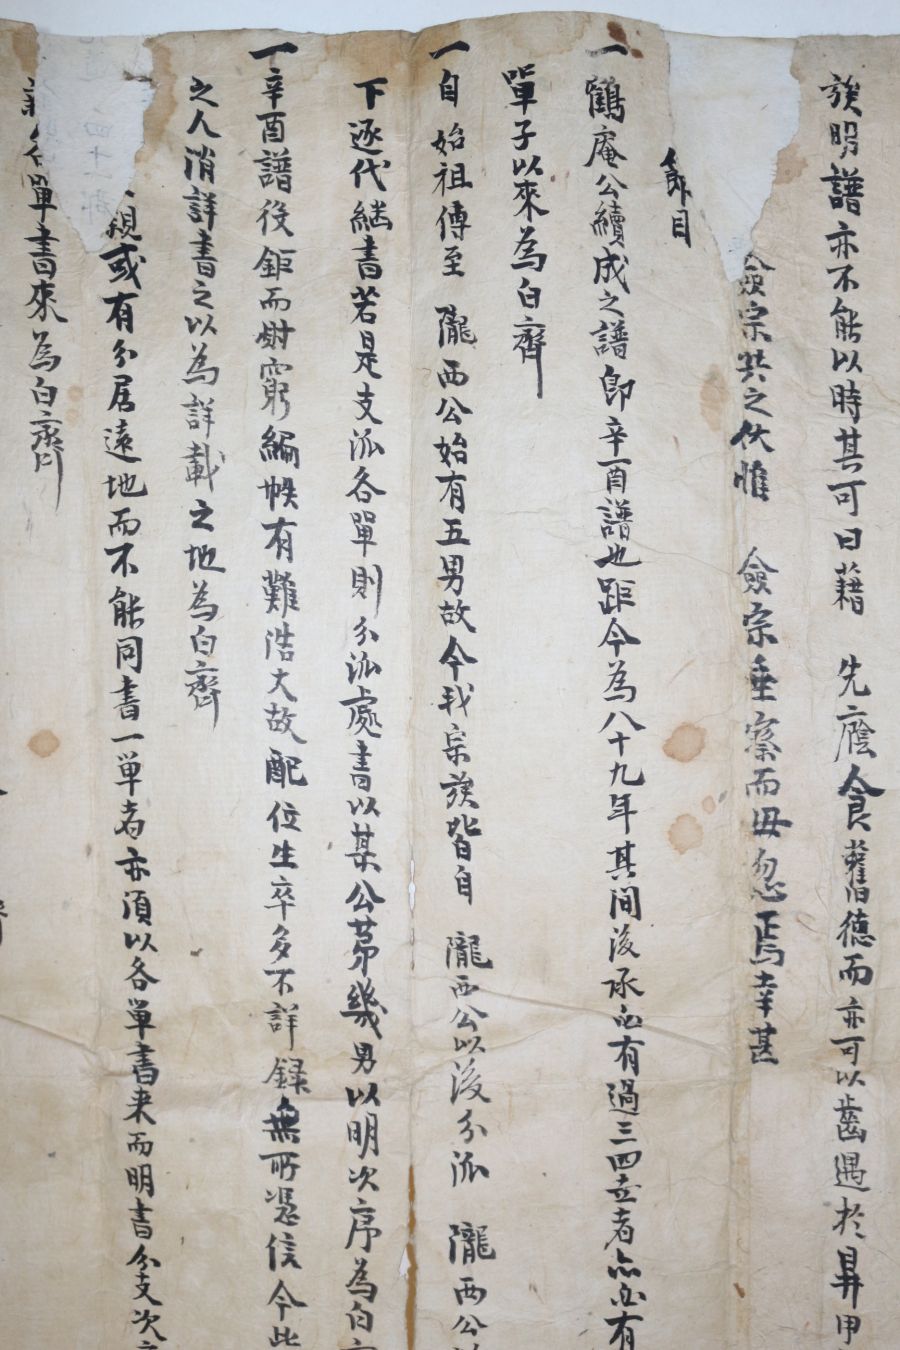 族明譜亦不能以時其可曰藉 先廕食舊德而亦可以齒遇於昇甲
僉宗共之伏惟 僉宗垂察而毋忽焉幸甚
節目
一 鶴庵公續成之譜卽辛酉譜也距今為八十九年其間後承必有過三四立者亦必有
單子以來為白齊
一 自始祖傳至 隴西公始有五男故今我宗族皆自 隴西公以後分派 隴西公以
下逐代継書若是支派各單則分派處書以某公苐幾男以明次序為白
一 辛酉譜役鉅而財窮編帙有難浩大故配位生卒多不詳録無所憑信今此
之人消詳書之以為詳載之地為白齊
親或有分居遠地而不能同書一単者亦須以各単書来而明書分支次
各單書來為白齊